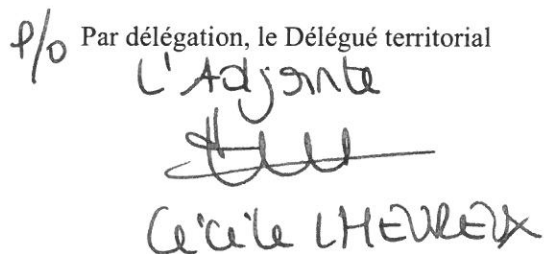 P/o Par délégation, le Délégué territorial
L'Adjointe
Cécile LHEUREUX